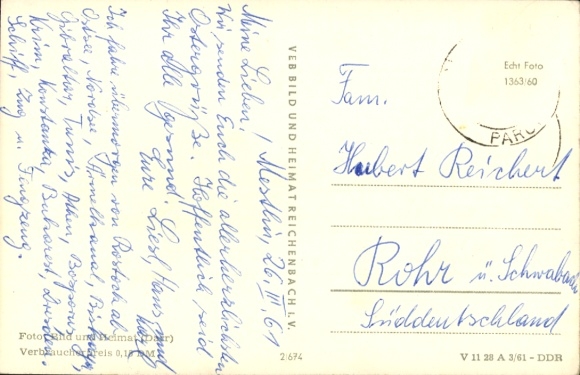 Mestlin, 26. III. 61
Meine Lieben!
Wir senden Euch die allerherzlichsten
Ostergrüße. Hoffentlich seid
Ihr alle gesund!
Eure Liesl, Hans und
Ich fahre übermorgen von Rostock ab
Ostsee, Nordsee, Ärmelkanal, Biskaya,
Gibraltar, Tunis, Athen, Bosporus,
Krim, Konstanza, Bukarest,
Schiff, Zug u. Flugzeug.
Foto: Bild und Heimat
Verbraucherpreis 0,15 DM
VEB BILD UND HEIMAT REICHENBACH I. V.
2/674
Echt Foto
1363/60
PARC
Fam.
Hubert Reichert
Rohr ü. Schwabach
Süddeutschland
V 11 28 A 3/61 – DDR